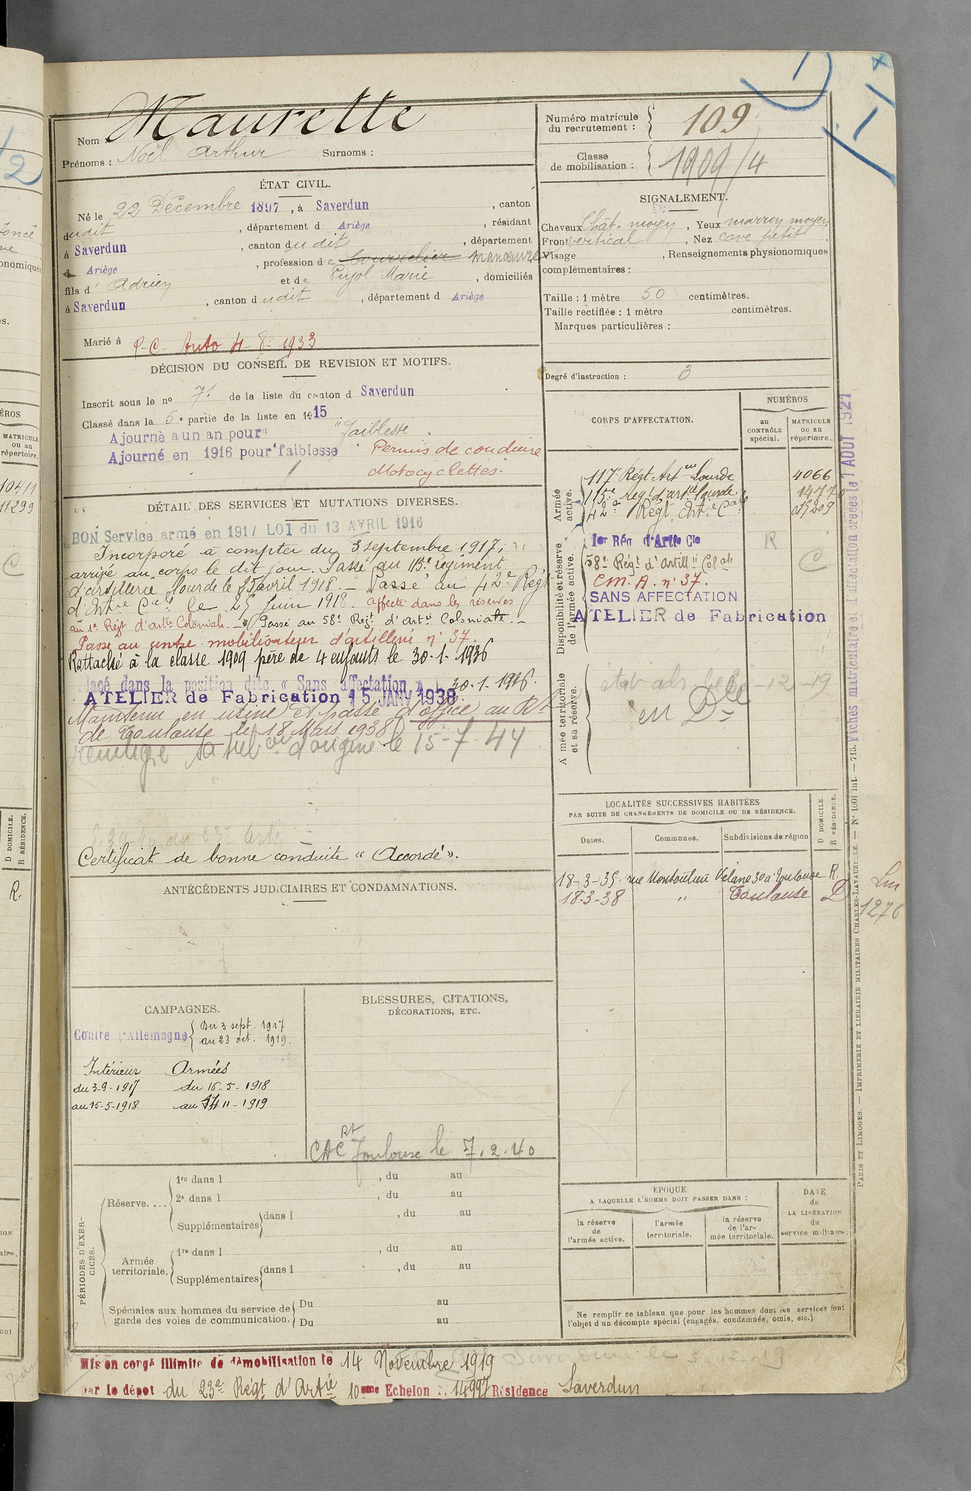 Nom Maurette
Prénoms : Noël Arthur Surnoms :
Numéro matricule du recrutement : 109
Classe de mobilisation : 1909/4
ÉTAT CIVIL.
Né le 22 Décembre 1897, à Saverdun, canton
dudit, département d Ariège, résidant
à Saverdun, canton dudit, département
d Ariège, profession de manœuvre
fils d' Adrien et de Pujol Marie, domiciliés
à Saverdun, canton dudit, département d Ariège
Marié à
P.C. Auto 4-8-1933
SIGNALEMENT.
Cheveux Chât. moyen, Yeux marron moyen
Front vertical, Nez cave petit
Visage, Renseignements physionomiques
complémentaires :
Taille : 1 mètre 50 centimètres.
Taille rectifiée : 1 mètre centimètres.
Marques particulières :
Degré d'instruction : 3
DÉCISION DU CONSEIL DE REVISION ET MOTIFS.
Inscrit sous le no 71 de la liste du canton d Saverdun
Classé dans la 5e partie de la liste en 1915
Ajourné a un an pour "faiblesse".
Ajourné en 1916 pour faiblesse
Permis de conduire
Motocyclettes.
DÉTAIL DES SERVICES ET MUTATIONS DIVERSES.
BON Service armé en 1917 LOI du 13 AVRIL 1916
Incorporé à compter du 3 septembre 1917,
arrivé au corps le dit jour. Passé au 115e régiment
d'artillerie lourde le 15 avril 1918. – Passé au 42e Régt
d'Artrie Cale le 25 Juin 1918. affecté dans les réserves
au 1er Régt d'artie Coloniale. – Passé au 58e Régt d'Artie Coloniale. –
Passe au centre mobilisateur d'artillerie n° 37.
Rattaché à la classe 1909 père de 4 enfants le 30-1-1936
Placé dans la position dite « Sans affectation » 30-1-1936.
ATELIER de Fabrication 15 JANV 1938
Maintenu en usine et passé d'office au Rt
de Toulouse le 18 Mars 1938
d'origine le 15-7-44
Certificat de bonne conduite « Accordé ».
CORPS D'AFFECTATION.
NUMÉROS
au CONTRÔLE spécial.
MATRICULE OU AU répertoire.
Armée active.
117e Régt Artie Lourde 4066
115e Régt d'artie lourde 1477
42e Régt Art. Cale 17209
Disponibilité et réserve de l'armée active.
1er Rég d'Artie Cle R
58e Régt d'Artill. Colale C
C.M.A. n° 37.
SANS AFFECTATION
ATELIER de Fabrication
Armée territoriale et sa réserve.
LOCALITÉS SUCCESSIVES HABITÉES
PAR SUITE DE CHANGEMENTS DE DOMICILE OU DE RÉSIDENCE.
Dates. Communes. Subdivisions de région
D DOMICILE.
R RÉSIDENCE.
18-3-35 rue Montoulieu Vélane 30 à Toulouse R.
18-3-38 " Toulouse D
Lm
1276
ANTÉCÉDENTS JUDICIAIRES ET CONDAMNATIONS.
CAMPAGNES.
Contre l'Allemagne { Du 3 sept. 1917
au 23 oct. 1919.
Intérieur Armées
du 3-9-1917 du 16-5-1918
au 15-5-1918 au 11-1919
BLESSURES, CITATIONS,
DÉCORATIONS, ETC.
Toulouse le 7.2.40
PÉRIODES D'EXERCICES.
Réserve....
1re dans l , du au
2e dans l , du au
Supplémentaires dans l , du au
Armée territoriale.
1re dans l , du au
Supplémentaires dans l , du au
Spéciales aux hommes du service de garde des voies de communication. Du au
Du au
EPOQUE
A LAQUELLE L'HOMME DOIT PASSER DANS :
la réserve de l'armée active.
l'armée territoriale.
la réserve de l'armée territoriale.
DATE de LA LIBÉRATION du service militaire.
Ne remplir ce tableau que pour les hommes dont les services font
l'objet d'un décompte spécial (engagés, condamnés, omis, etc.)
Mis en congé illimité de démobilisation le 14 Novembre 1919
par le dépôt du 23e Régt d'Artie 10eme Echelon : 14997 Résidence Saverdun
Fiches matriculaire et d'affectation créées le 1 AOUT 1927
PARIS ET LIMOGES. — IMPRIMERIE ET LIBRAIRIE MILITAIRES CHARLES-LAVAUZELLE. — N° 1001 int. — 715.